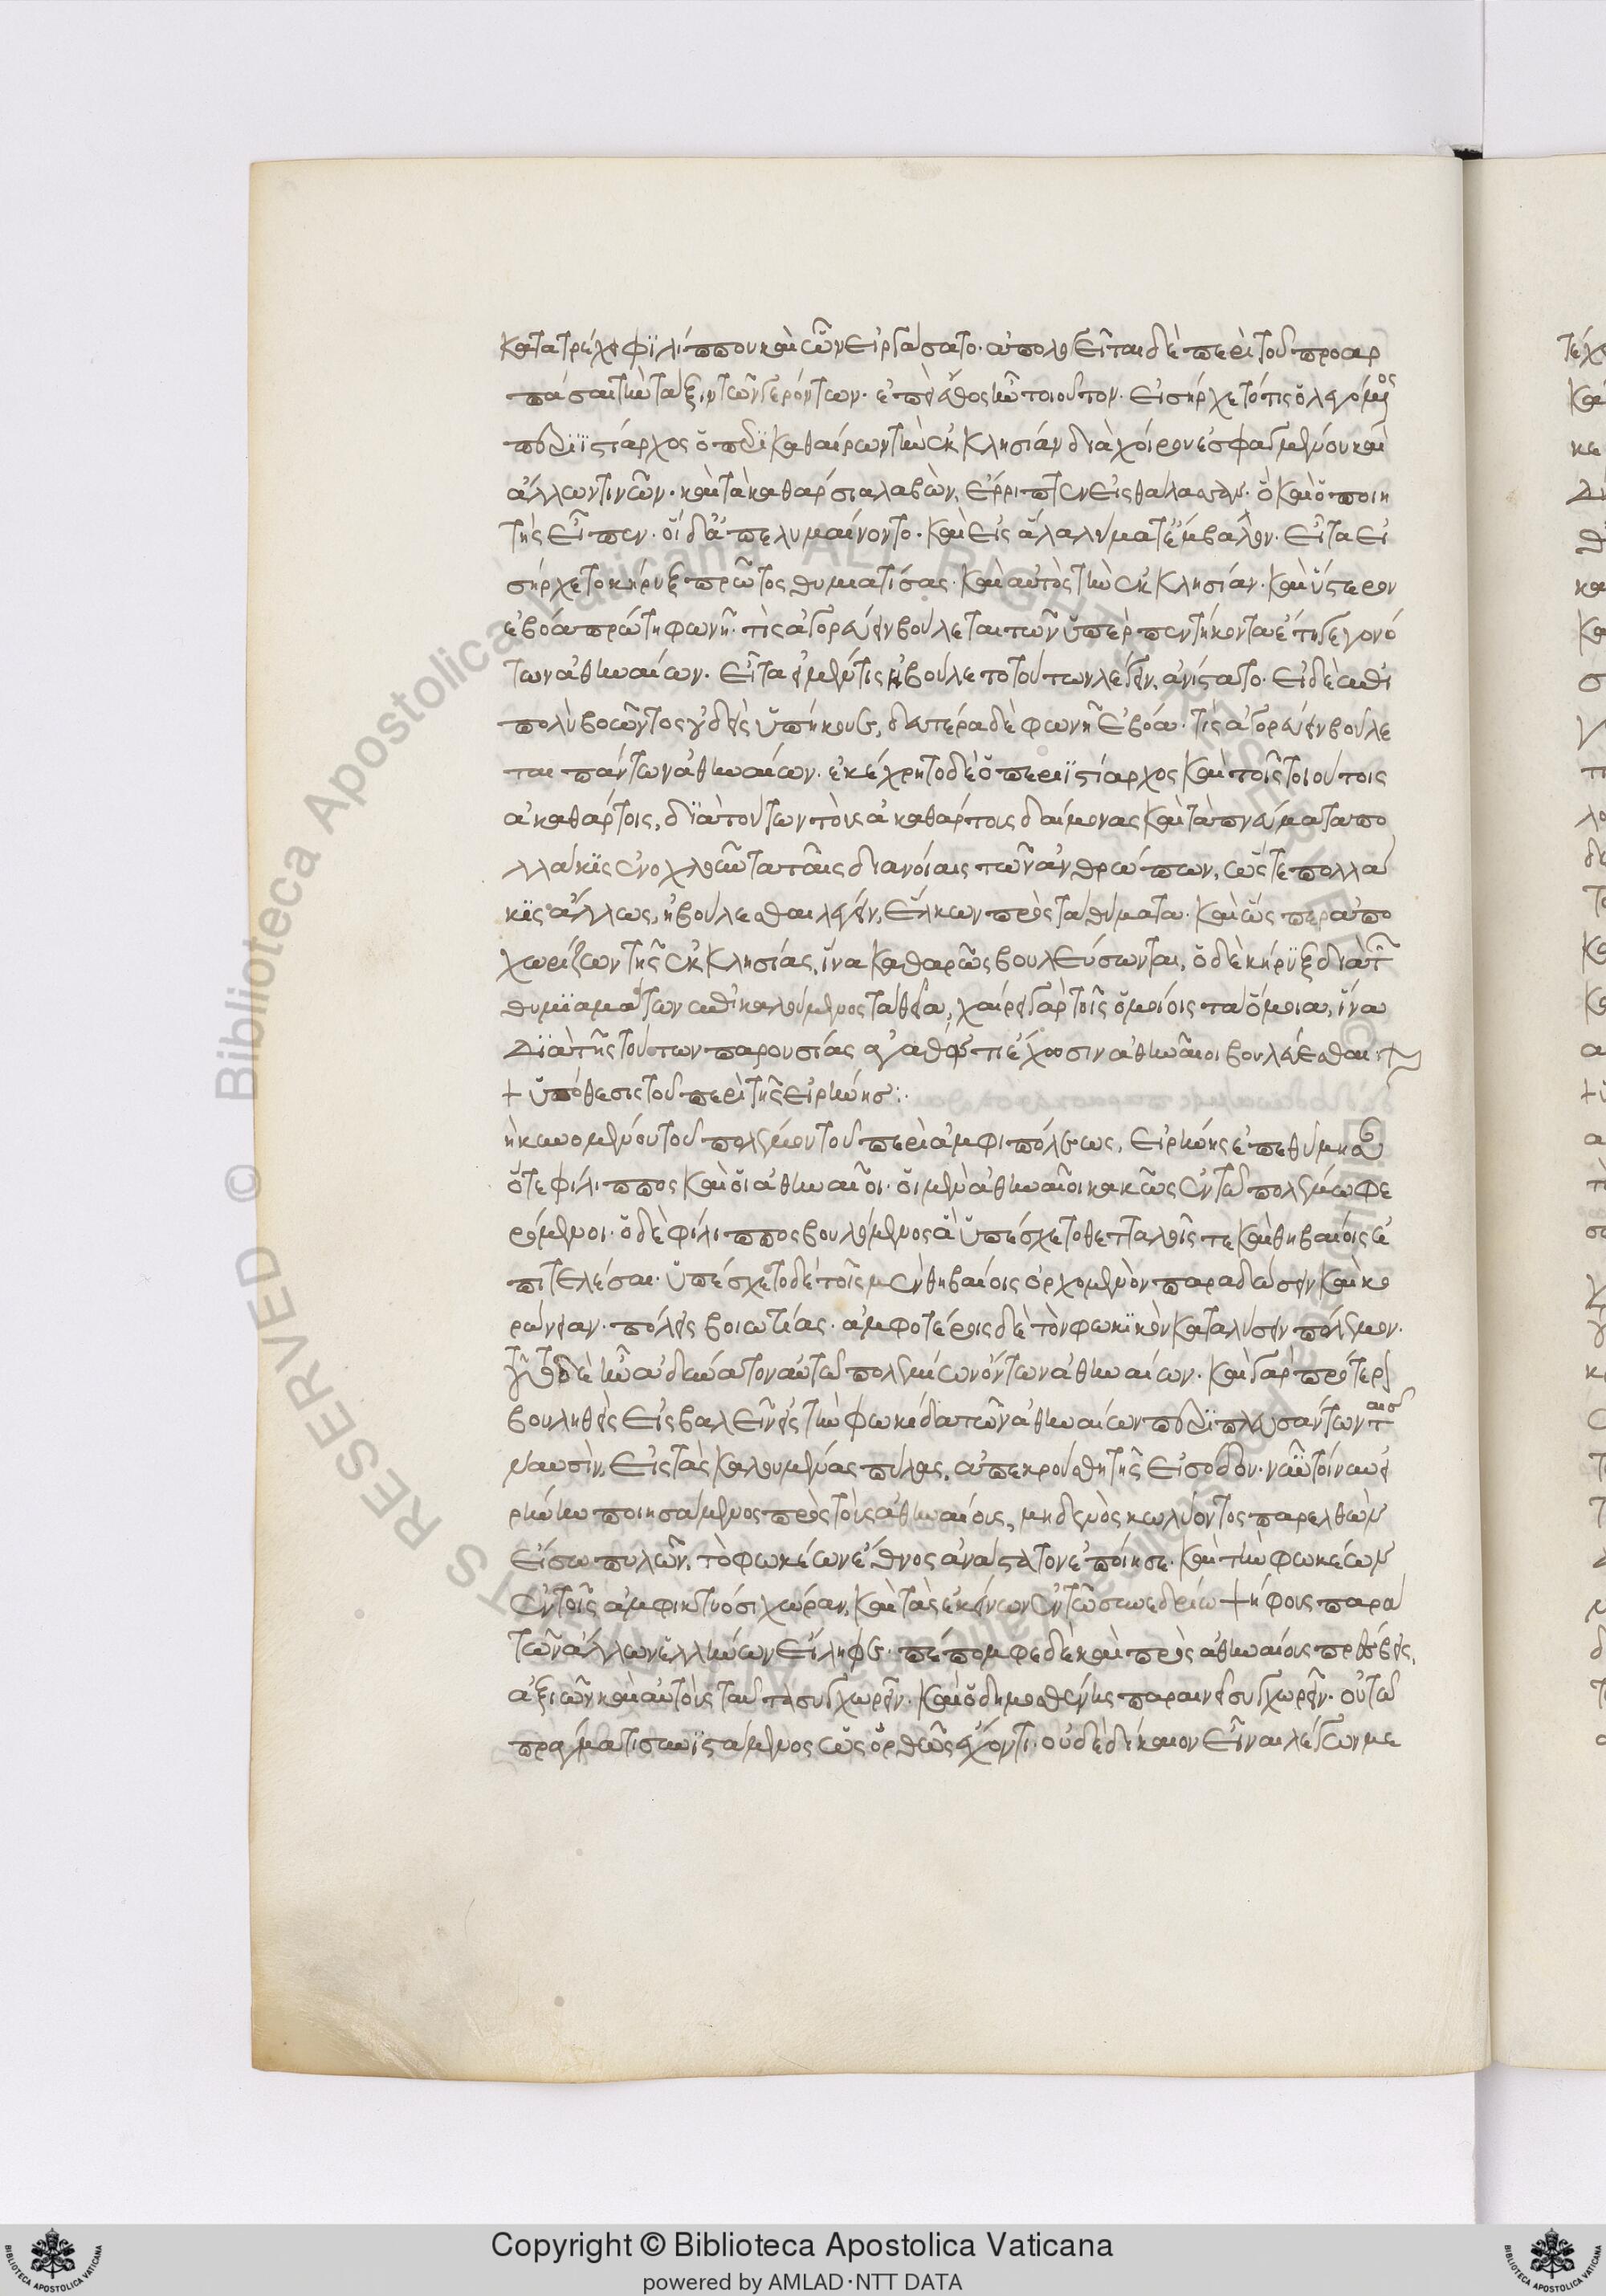 κατατρέχει φϊλίππου καὶ ὧν εἰργάσατο· ἀπολογεῖται δὲ περὶ τοῦ προαρ
πάσαι τὴν τάξιν τῶν γερόντων· ἐπεὶ ἔθος ἦν τοιοῦτον· εἰσήρχετό τις ὁ λεγόμενος
περιϊστίαρχος ὁ περικαθαίρων τὴν ἐκκλησίαν διὰ χοίρου ἐσφαγμένου καὶ
ἄλλων τινῶν· καὶ τὰ καθάρσια λαβὼν, ἔρριπτεν εἰς θάλασσαν· ὃ καὶ ὁ ποιη
τής εἶπεν· οἱ δ' ἀπελυμαίνοντο· καὶ εἰς ἅλα λύματ' ἔμβαλλον· εἶτα εἰ
σήρχετο κήρυξ πρῶτος θυμιατίσας· καὶ αὐτὸς τὴν ἐκκλησίαν· καὶ ὕστερον
ἐβόα πρώτη φωνῆ· τὶς ἀγορεύειν βούλεται τῶν ὑπὲρ πεντήκοντα ἔτη γεγονό
των ἀθηναίων· εἶτα εἰ μέν τις ἠβούλετο τούτων λέγειν, ἀνίστατο· εἰ δὲ ἐπὶ
πολὺ βοῶντος οὐδεὶς ὑπήκουσε, δευτέρα δὲ φωνῆ ἐβόα· τὶς ἀγορεύειν βούλε
ται πάντων ἀθηναίων· ἐκέχρητο δὲ ὁ περιϊστίαρχος καὶ τοῖς τοιούτοις
ἀκαθάρτοις, δϊὰ τούτων τοὺς ἀκαθάρτους δαίμονας καὶ τὰ πνεύματα πο
λλάκϊς ἐνοχλοῦντα ταῖς διανοίαις τῶν ἀνθρώπων, ὥστε πολλά
κϊς ἄλλως, ἠβούλεσθαι λέγειν, ἕλκων πρὸς τὰ θύματα· καὶ ὥσπερ ἀπο
χωρίζων τῆς ἐκκλησίας, ἵνα καθαρῶς βουλεύσωνται, ὁ δὲ κήρϋξ διὰ τ
θυμϊαμάτων ἐπικαλούμενος τὰ θεῖα, χαίρει γὰρ τοῖς ὁμοίοις τὰ ὅμοια, ἵνα
δϊὰ τῆς τούτων παρουσίας ἀγαθόν τι ἔχωσιν ἀθηναῖοι βουλεύεσθαι :~
+ ὑπόθεσις τοῦ περὶ τῆς εἰρήνησ :·
μηκυνομένου τοῦ πολέμου τοῦ περὶ ἀμφιπόλεως, εἰρήνης ἐπεθύμησεν
ὅτε φίλιππος καὶ οἱ ἀθηναῖοι· οἱ μὲν ἀθηναῖοι κακῶς ἐν τῶ πολέμω φε
ρόμενοι· ὁ δὲ φίλιππος βουλόμενος ἃ ὑπέσχετο θετταλοῖς τε καὶ θηβαίοις ἐ
πιτελέσαι· ὑπέσχετο δὲ τοῖς μὲν θηβαίοις ὀρχομενὸν παραδώσειν καὶ κο
ρώνειαν· πόλεις βοιωτίας· ἀμφοτέροις δὲ τὸν φωκϊκὸν καταλύσειν πόλεμον·
τοῦτο δὲ ἦν ἀδύνατον αὐτῶ πολεμίων ὄντων ἀθηναίων· καὶ γὰρ πρότερον
βουληθεὶς εἰσβαλεῖν εἰς τὴν φωκίδα τῶν ἀθηναίων περιπλευσάντων ταῖς
ναυσὶν, εἰς τὰς καλουμένας πύλας, ἀπεκρούσθη τῆς εἰσόδου· νῦν τοίνυν εἰ
ρήνην ποιησάμενος πρὸς τοὺς ἀθηναίους, μηδενὸς κωλύοντος παρελθὼν
εἴσω πυλῶν, τὸ φωκέων ἔθνος ἀνάστατον ἐποίησε· καὶ τὴν φωκέων
ἐν τοῖς ἀμφικτύοσι χώραν, καὶ τὰς ἐκείνων ἐν τῶ συνεδρίω ψήφους παρὰ
τῶν ἄλλων ἑλλήνων εἴληφε· πέπομφε δὲ καὶ πρὸς ἀθηναίους πρέσβεις,
ἀξιῶν καὶ αὐτοὺς ταῦτα συγχωρεῖν· καὶ ὁ δημοσθένης παραινεῖ συγχωρεῖν· οὔτω
πράγματι συνϊστάμενος ὡς ὀρθῶς ἔχοντι· οὐδὲ δίκαιον εἶναι λέγων με